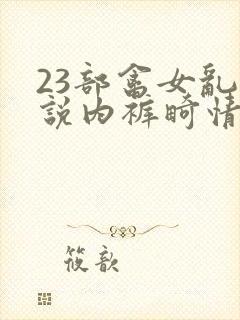 23部畜女亂
說内裤畸情
筱歆